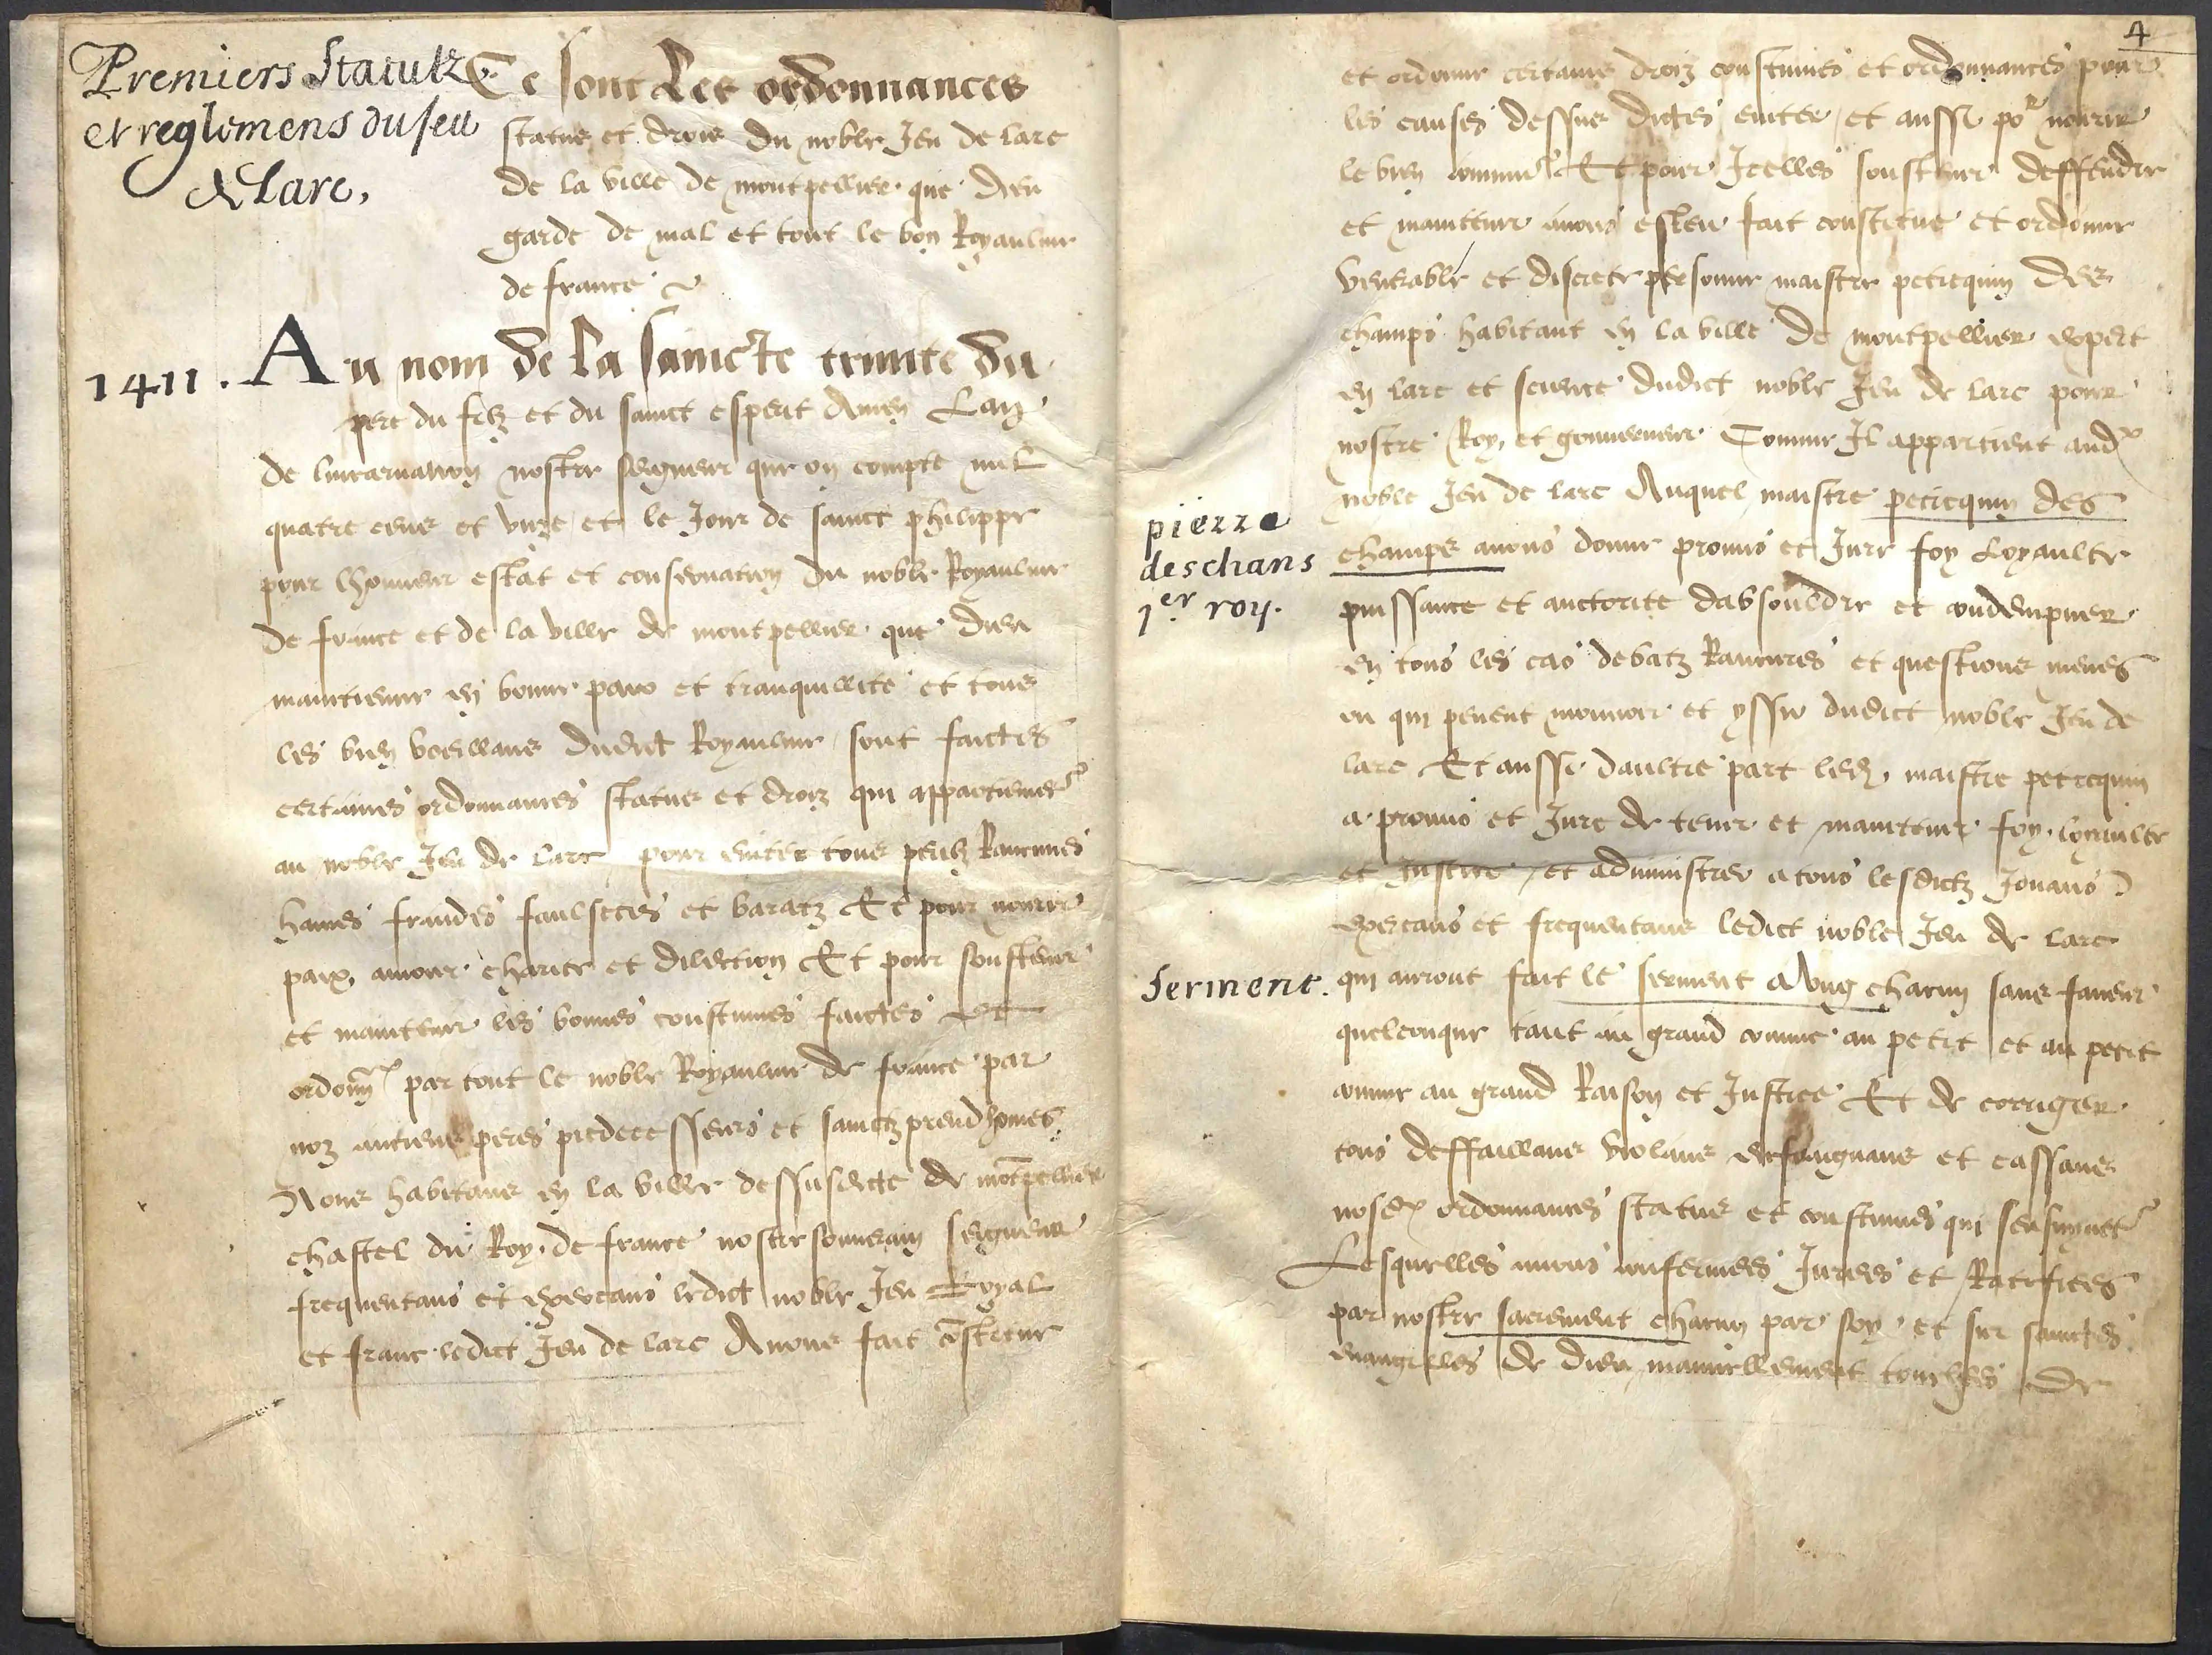 Premiers Statutz
et reglemens du Jeu
de Larc,
Ce sont Les ordonnances
status et drois du noble Jeu de larc
de la ville de montpellier que dieu
garde de mal et tout le bon Royaulme
de france
1411.
Au nom de la saincte trinite du
pere du filz et du sainct esperit Amen Lan
de lincarnation nostre seigneur que on compte mil
quatre cens et unze et le Jour de sainct philippe
pour lhonneur estat et conservation du noble Royaulme
de france et de la ville de montpellier que dieu
maintienne en bonne paix et tranquillite et tous
les bien veillans dudict Royaulme sont faictes
certaines ordonnances status et droiz qui appartienent
au noble Jeu de larc pour eviter tous perilz Rancunes
haines fraudes faulsetes et baratz Et pour nourrir
paix amour charite et dilection Et pour soustenir
et maintenir les bonnes coustumes faictes et
ordonn par tout le noble Royaulme de france par
noz anciens peres predecesseurs et sainctz preudhomes
Nous habitans en la ville dessusdicte de motpellier
chastel du Roy de france nostre souverain seigneur
frequentans et exercans ledict noble Jeu Loyal
et franc ledict Jeu de larc Avons fait cstitue
4
et ordonne certains droiz coustumes et ordonnances pour
les causes dessus dictes eviter et aussi por nourir
le bien commu Et pour Icelles soustenir deffendre
et maintenir avons esleu fait constitue et ordonne
venerable et discrete persone maistre petrequin des
champs habitant en la ville de montpellier expert
en larc et science dudict noble Jeu de larc pour
nostre Roy, et gouverneur Comme Il appartient aud
noble Jeu de larc Auquel maistre petrequin des
champs avons donne promis et Jure foy Loyaulte
puissance et auctorite dabsouldre et condempner
en tous les cas debatz Rancunes et questions meues
ou qui peuent mouvoir et yssir dudict noble Jeu de
larc Et aussi daultre part led maistre petrequin
a promis et Jure de tenir et maintenir foy loyaulte
et Justice et administrer a tous lesdictz Jouans
exercans et frequentans ledict noble Jeu de larc
qui auront fait le serment a ung chacun sans faveur
quelconque tant au grand comme au petit et au petit
comme au grand Raison et Justice Et de corriger
tous deffaillans violans et cassans
nosd ordonnances status et coustumes qui sensuyvet
Lesquelles avons confermees Jurees et Ratifiees
par nostre sacrement chacun par soy et sur sainctes
evangilles de dieu manuellement touchees de
pierre
deschans
1er roy.
Serment.